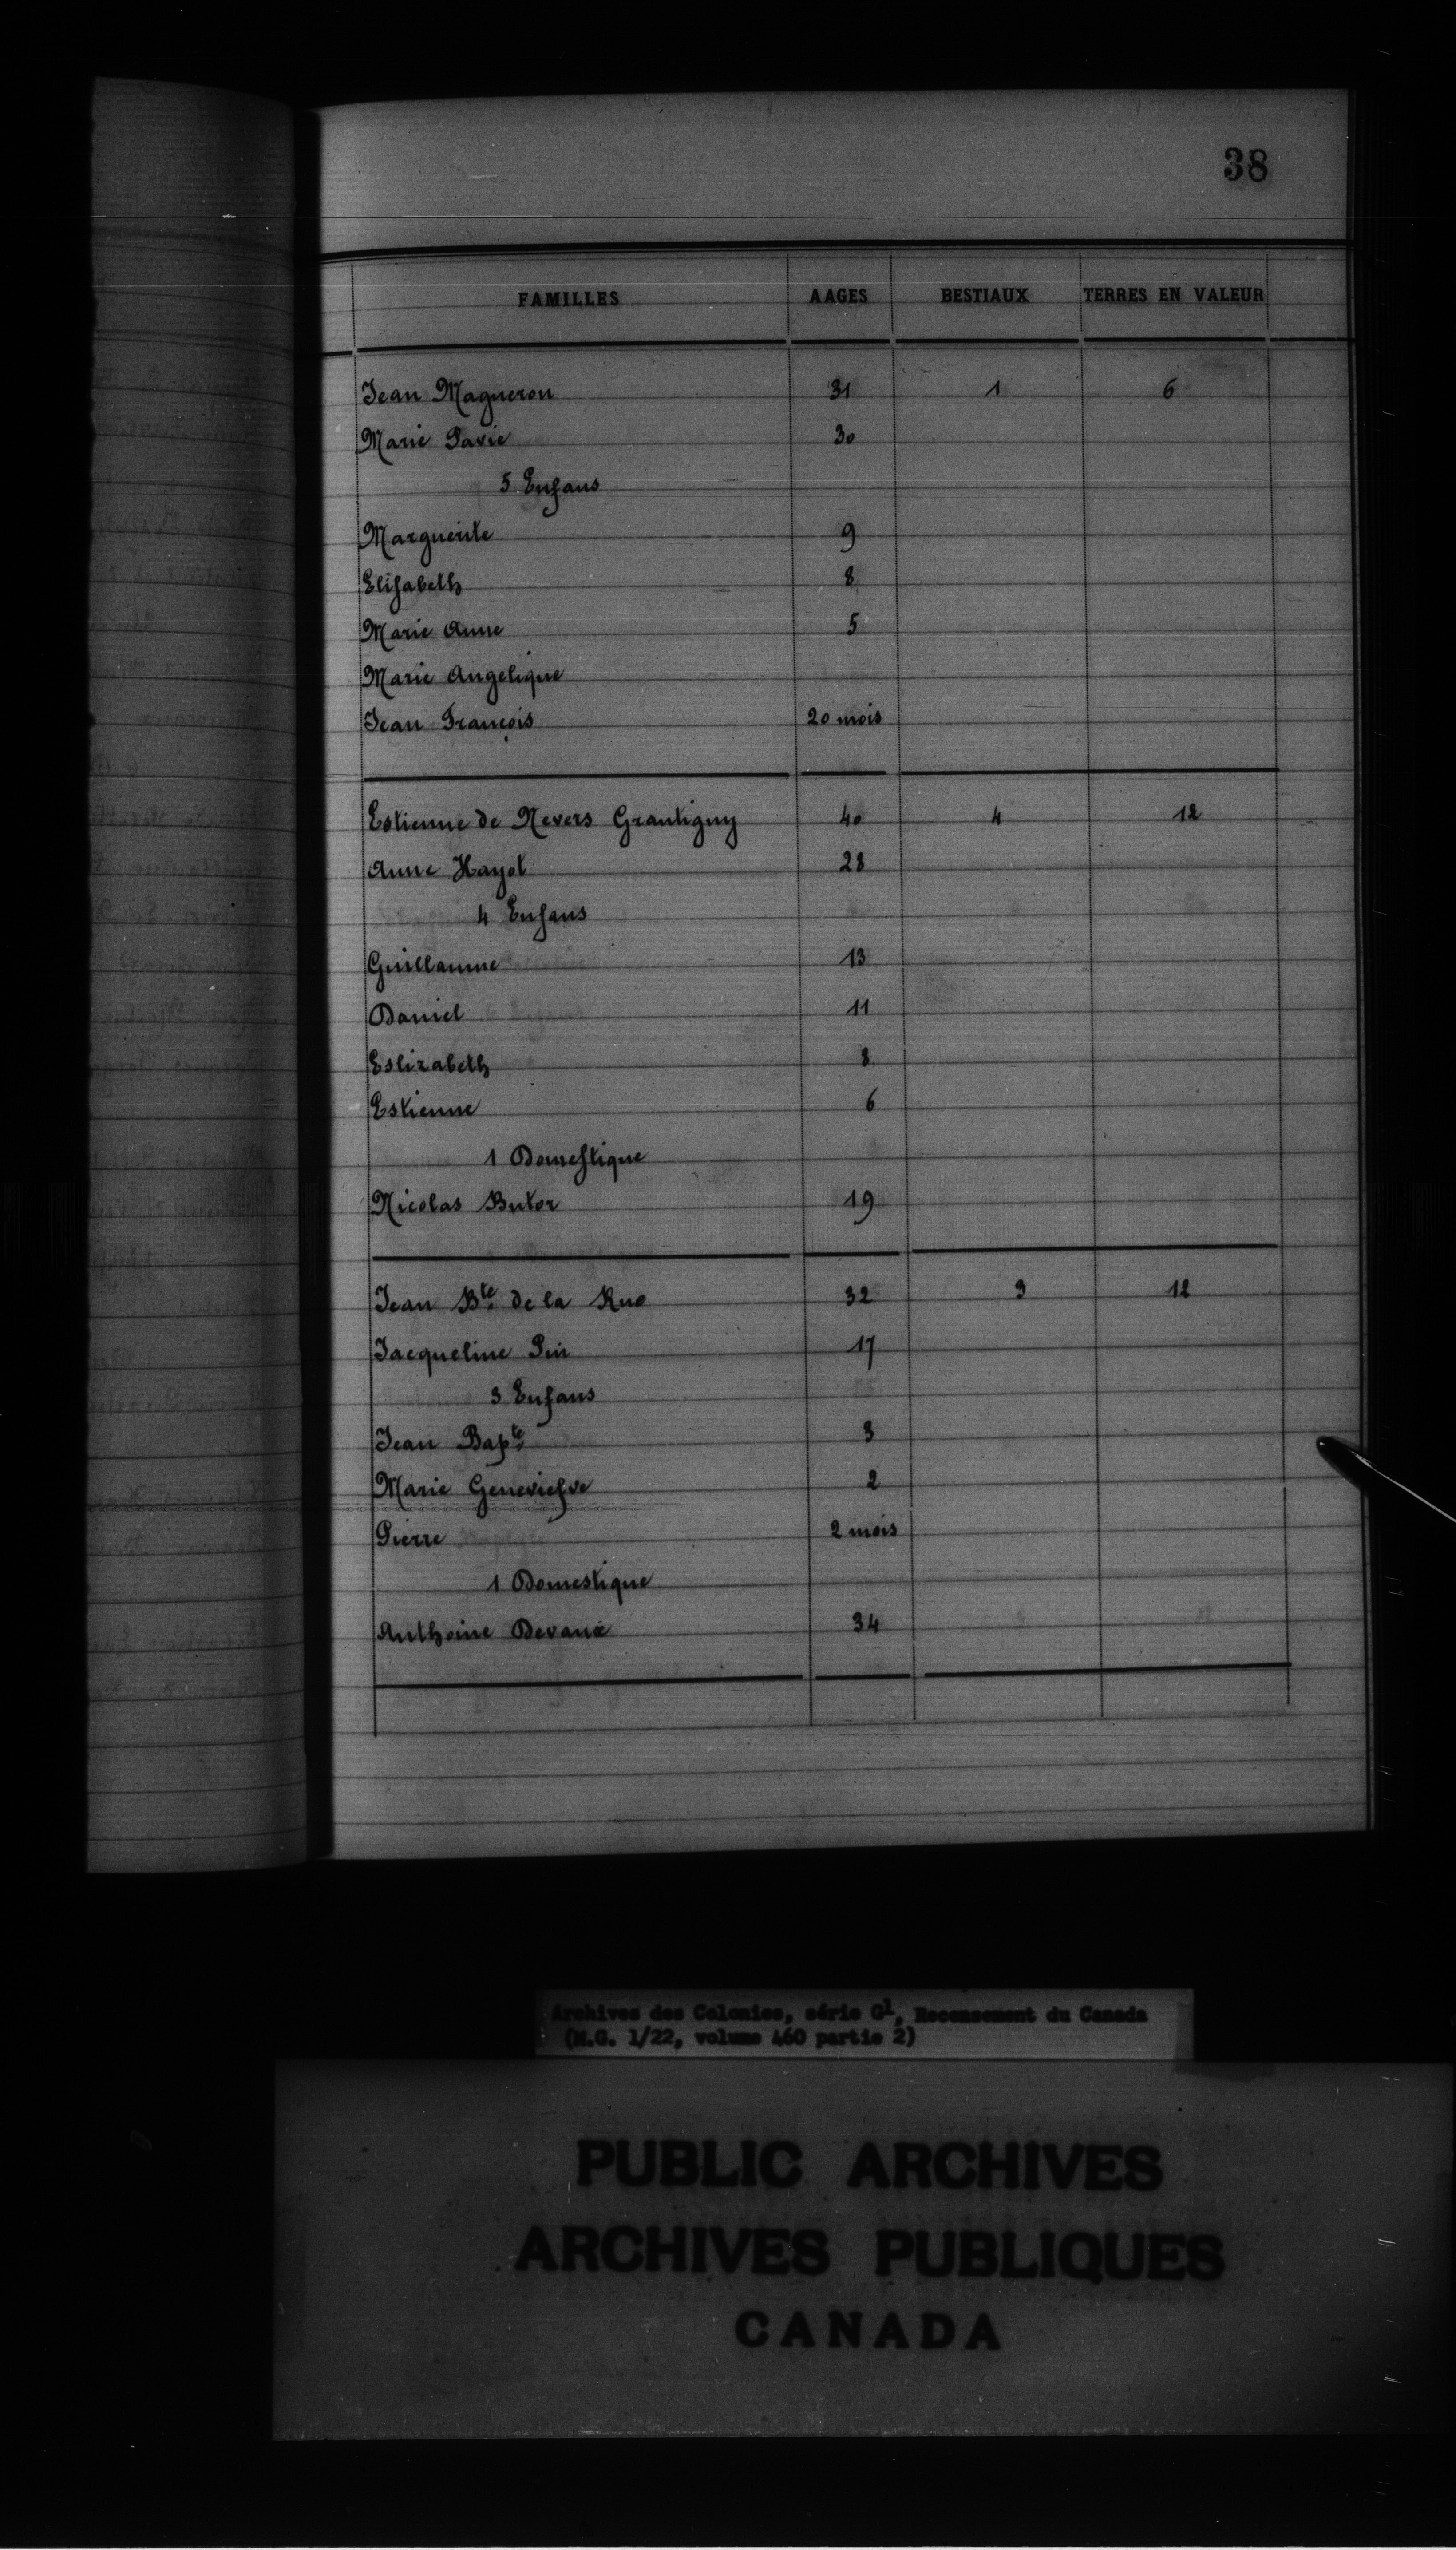 38
FAMILLES AAGES BESTIAUX TERRES EN VALEUR
Jean Magneron 31 1 6
Marie Pavie 30
5 Enfans
Marguerite 9
Elisabeth 8
Marie Anne 5
Marie Angelique
Jean François 20 mois
Estienne de Nevers Grantigny 40 4 12
Anne Hayot 28
4 Enfans
Guillaume 13
Daniel 11
Eslizabeth 8
Estienne 6
1 Domestique
Nicolas Butor 19
Jean Bte. de la Rue 32 3 12
Jacqueline Pin 17
3 Enfans
Jean Bapte. 3
Marie Geneviefve 2
Pierre 2 mois
1 Domestique
Anthoine Devaux 34
Archives des Colonies, série G1, Recensement du Canada
(M.G. 1/22, volume 460 partie 2)
PUBLIC ARCHIVES
ARCHIVES PUBLIQUES
CANADA